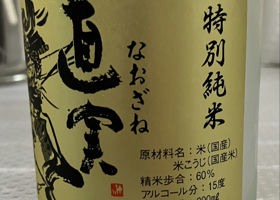 特別純米
直実
なおざね
原材料名：米(国産)
米こうじ(国産米)
精米歩合：60%
アルコール分：15度